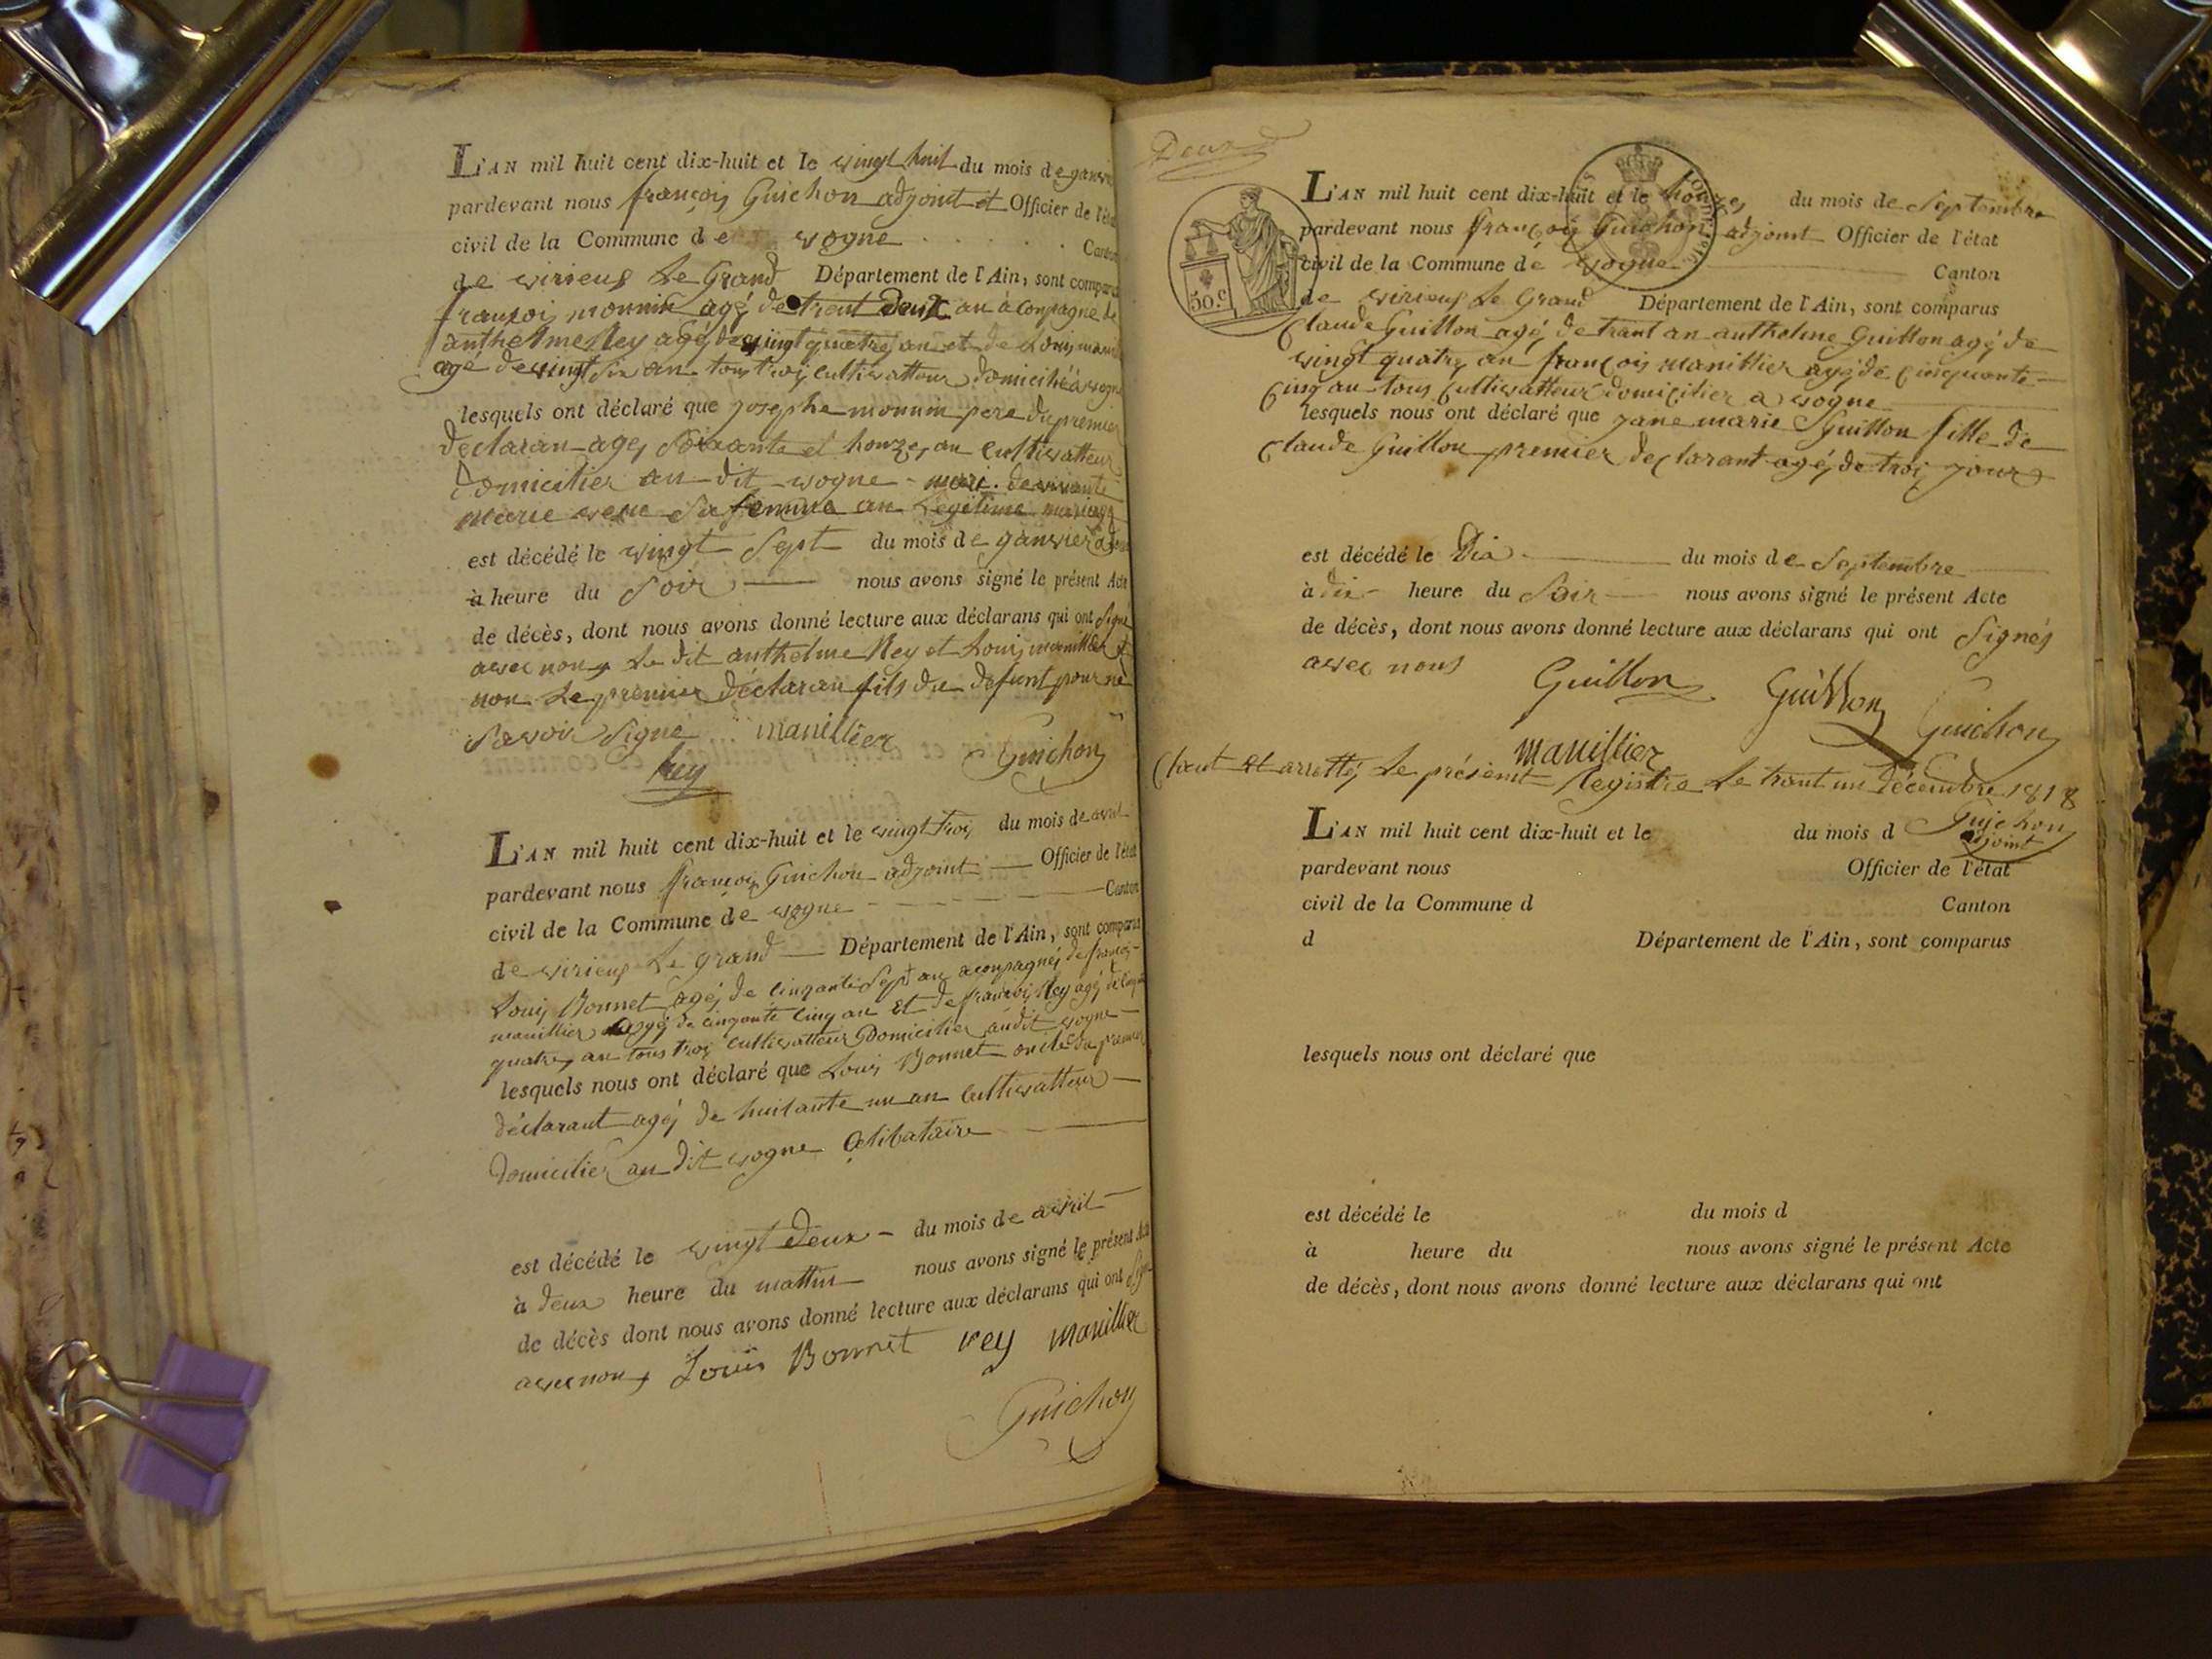 L'AN mil huit cent dix-huit et le vingt huit du mois de ganvier
pardevant nous françois Guichon adjoint et Officier de l'état
civil de la Commune de vogne Canton
de virieux Le Grand Département de l'Ain, sont comparus
françois monnin agé de trent deux an àcompagné de
anthelme Rey agé de vingt quatre an et de Louis
agé de vingt six an tous troi cultivatteur domicilié à vogne
lesquels ont déclaré que josephe monnin pere du premier
declaran agé soixante et honze an cultivatteur
domicilier au dit vogne mari de vivante
marie sa femme an Legitime mariage
est décédé le vingt sept du mois de ganvier
à heure du soir nous avons signé le présent Acte
de décès, dont nous avons donné lecture aux déclarans qui ont signé
avec nous Le dit anthelme Rey et Louis manillier et
non Le premier déclaran fils du defunt pour ne
savoir signé manillier
Rey Guichon
L'AN mil huit cent dix-huit et le vingt troi du mois de avril
pardevant nous françois Guichon adjoint Officier de l'état
civil de la Commune de vogne Canton
de virieux Le grand Département de l'Ain, sont comparus
Louis Bonnet agé de cinqante sept an acompagné de françois
manillier agé de cinqante cinq an et de françois Rey agé de
quatre an tous troi cultivatteur Domicilier au dit vogne
lesquels nous ont déclaré que Louis Bonnet oncle du premier
déclarant agé de huitante un an Cultivatteur
domicilier au dit vogne Celibataire
est décédé le vingt deux du mois de avril
à deux heure du mattin nous avons signé le présent Acte
de décès dont nous avons donné lecture aux déclarans qui ont signé
avec nous Louis Bonnet rey manillier
Guichon
Deux
50.c
L'AN mil huit cent dix-huit et le honze du mois de Septembre
pardevant nous françois Guichon adjoint Officier de l'état
civil de la Commune de vogne Canton
de virieux Le Grand Département de l'Ain, sont comparus
Claude Guillon agé de trant an anthelme Guillon agé de
vingt quatre an françois manillier agé de cinquante
Cinq an tous Cultivatteur domicilier a vogne
lesquels nous ont déclaré que jane marie Guillon fille de
Claude Guillon premier declarant agé de troi jour
est décédé le Dix du mois de Septembre
à dix heure du Soir nous avons signé le présent Acte
de décès, dont nous avons donné lecture aux déclarans qui ont Signés
avec nous Guillon Guillon Guichon
manillier
Clout et arretté Le présent Registre Le trant un décembre 1818
Guichon
adjoint
L'AN mil huit cent dix-huit et le du mois d
pardevant nous Officier de l'état
civil de la Commune d Canton
d Département de l'Ain, sont comparus
lesquels nous ont déclaré que
est décédé le du mois d
à heure du nous avons signé le présent Acte
de décès, dont nous avons donné lecture aux déclarans qui ont